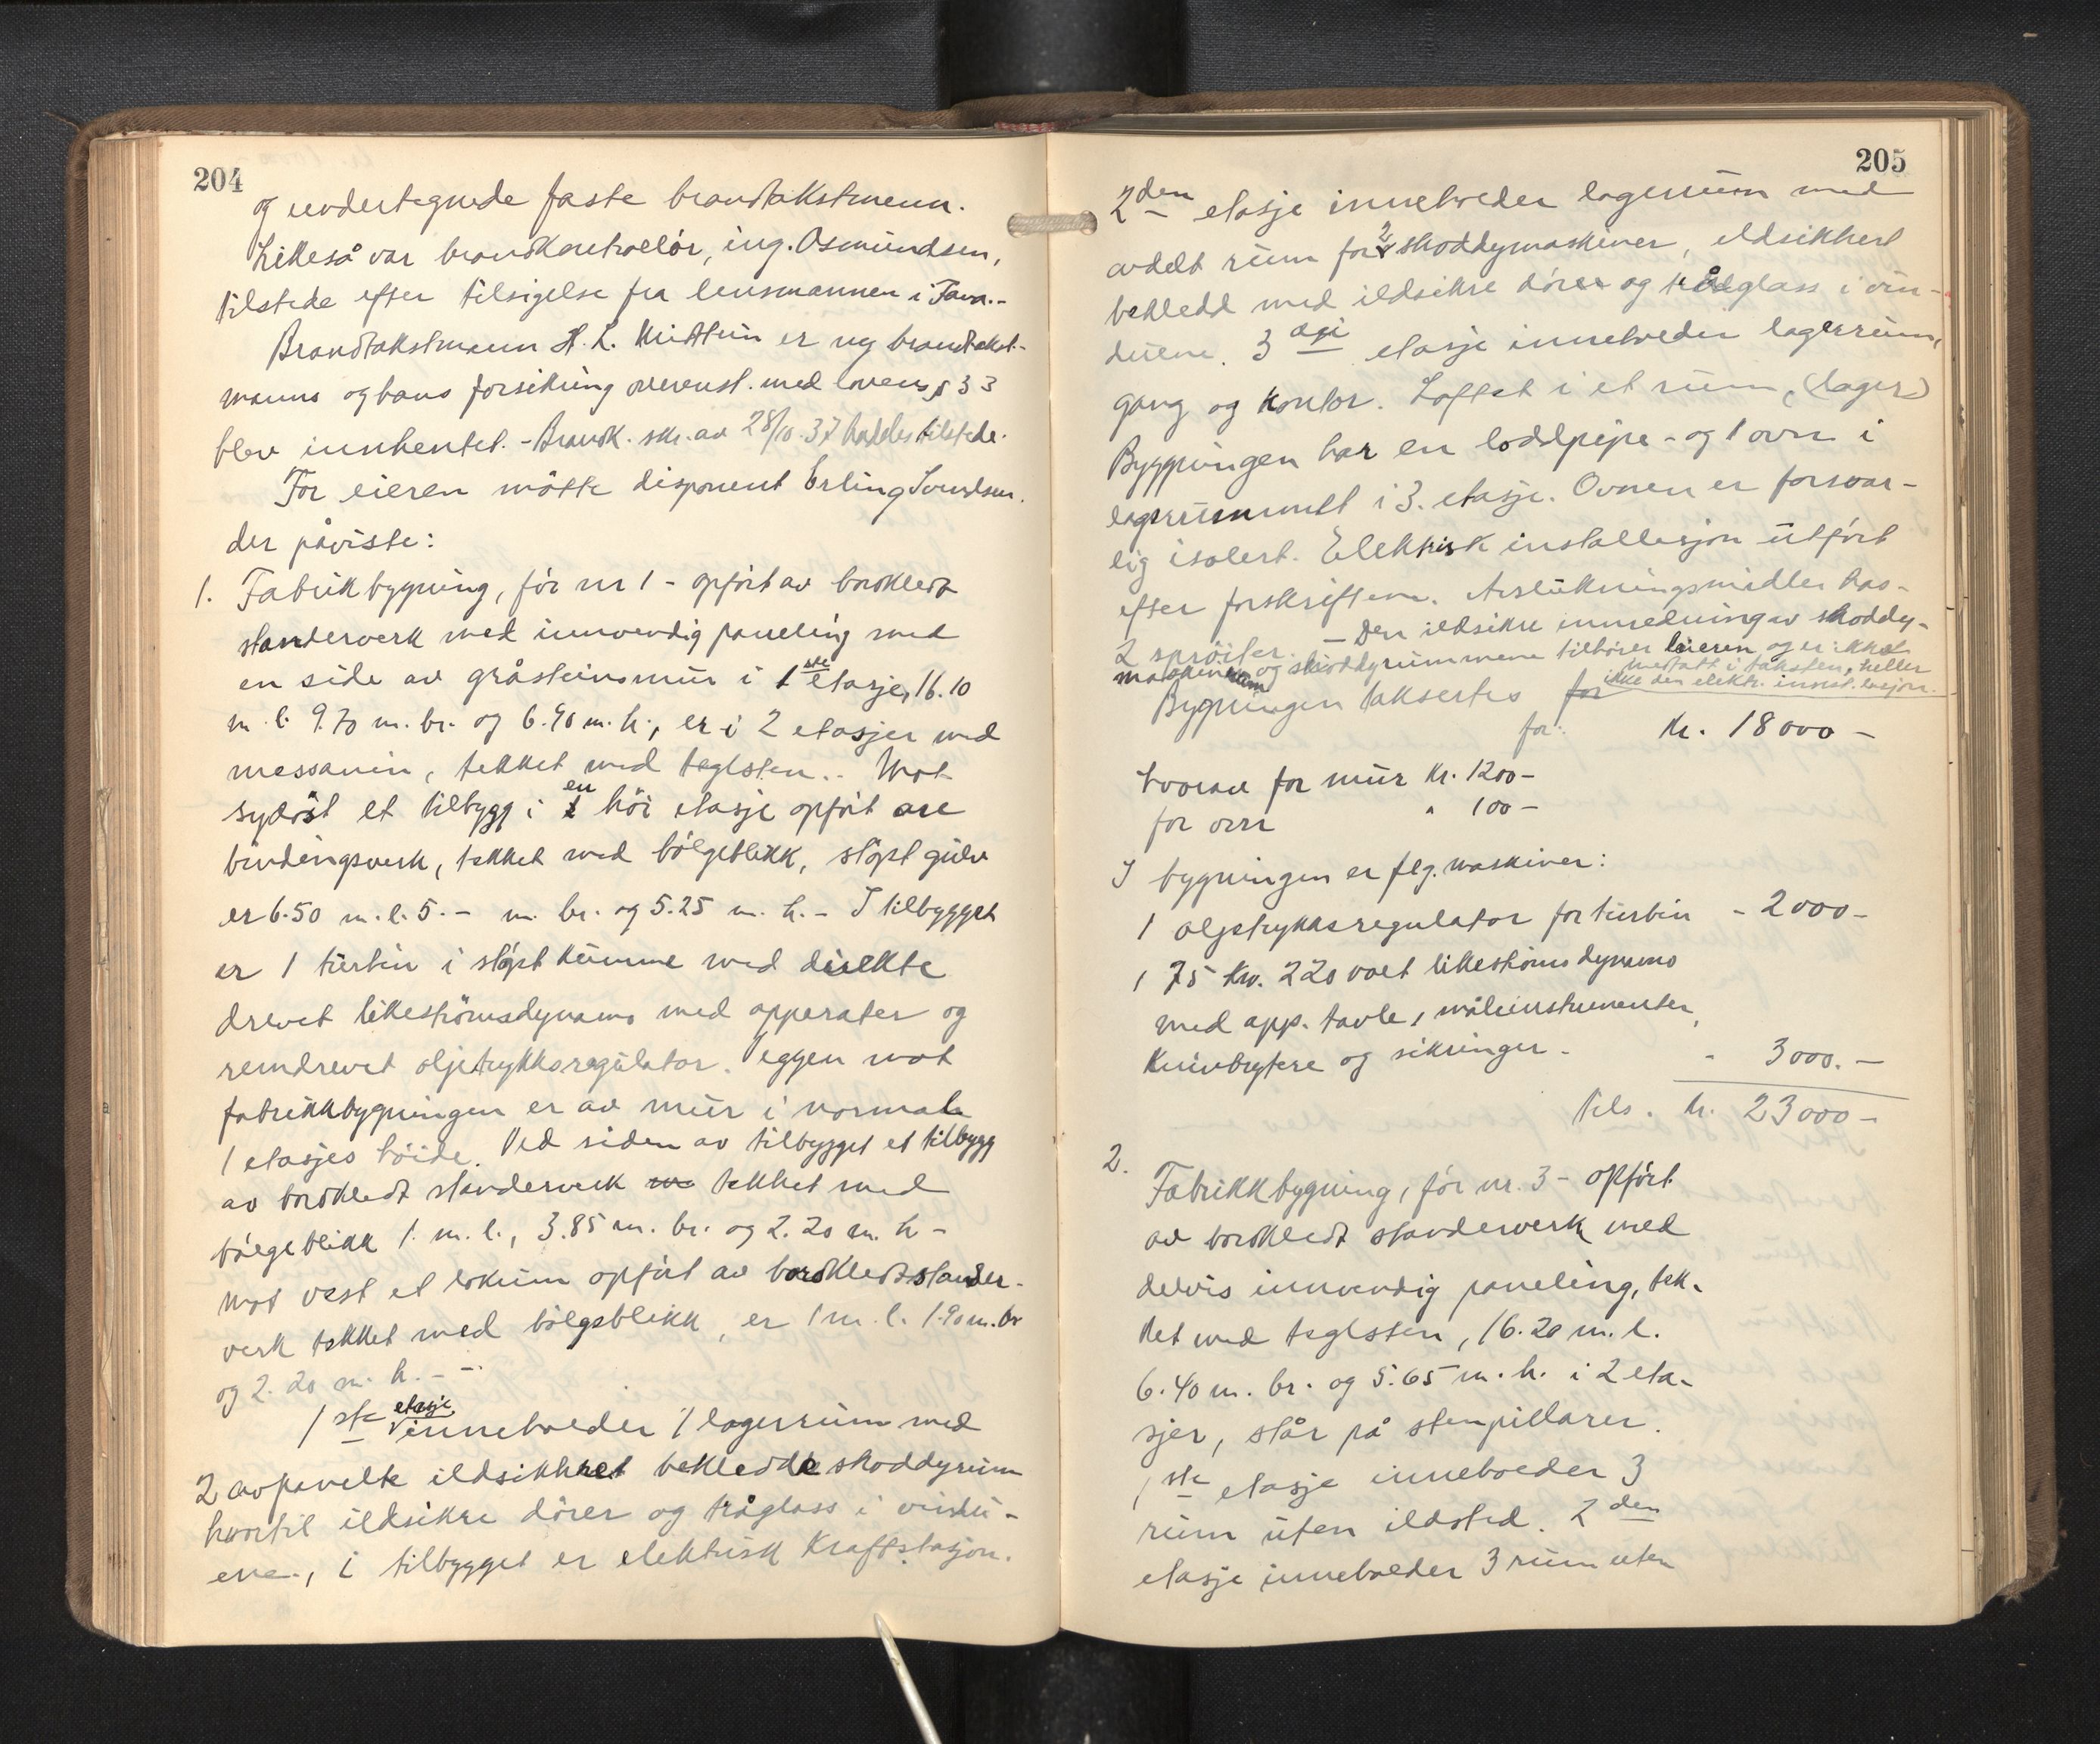 204
og undertegnede faste brandtakstmenn.
Likeså var brandkontrollör, ing. Osmundsen,
tilstede efter tilsigelse fra lensmannen i Fana.-
Brandtakstmann H. L. Midttun er ny brandtakst-
manns og hans forsikring overenst. med lovens § 33
blev innhentet. - Brandk. skr. av 28/10.37 hadde tilstede.
For eieren mötte disponent Erling
der påviste:
1. Fabrikbygning, för nr 1 - opfört av bordkledt
standerverk med innvendig paneling med
en side av gråsteinsmur i 1ste etasje, 16.10
m. l. 9.70 m. br. og 6.90 m. h., er i 2 etasjer med
messanin, tekket med teglsten.. Mot
sydöst et tilbygg i en höi etasje opfört av
bindingsverk, tekket med bölgeblikk, stöpt gulv
er 6.50 m. l. 5.- m. br. og 5.25 m. h. - I tilbygget
er 1 turbin i stöpt kumme med direkte
drevet likeströmsdynamo med apparater og
remdrevet oljetrykksregulator. Veggen mot
fabrikkbygningen er av mur i normale
1 etasjes höide. Ved siden av tilbygget et tilbygg
av bordkledt standerverk tekket med
bölgeblikk 1. m. l., 3.85 m. br. og 2.20 m. h -
Mot vest et lokum opfört av bordkledt stander-
verk tekket med bölgeblikk, er 1 m. l. 1.90 m. br
og 2.20 m. h. - -.
1ste etasje inneholder 1 lagerrum med
2 avpanelte ildsikkert bekledde skoddyrum
hvortil ildsikre dörer og tråglass i vindu-
ene., i tilbygget er elektrisk Kraftstasjon.
205
2den etasje inneholder lagerrum med
avdelt rum for 2 skoddymaskiner, ildsikkert
bekledd med ildsikre dörer og trådglass i vin-
duene. 3dje etasje inneholder lagerrum,
gang og kontor. Loftet i et rum, (lager)
Bygningen har en loddpipe - og 1 ovn i
lagerrummet i 3. etasje. Ovnen er forsvar-
lig isolert. Elektrisk installasjon utfört
efter forskriftene. Avslukningsmidler has-
2 spröiter. - Den ildsikre innredning av skoddy-
maskinrum og skoddyrummene tilhörer leieren og er ikke
medtatt i taksten, heller
ikke den elektr. innst.lasjon.
Bygningen taksertes for
for: Kr. 18000 -
hvorav for mur kr. 1200 -
for ovn " 100 -
I bygningen er flg. maskiner:
1 oljetrykksregulator for turbin - 2000 -
1 75 Kw. 220 volt likeströmsdynamo
med app. tavle, måleinstrumenter,
Knivbrytere og sikringer - - 3000.-
Tils. kr. 23000 -
2. Fabrikkbygning, för nr. 3 - opfört
av bordkledt standerverk med
delvis innvendig paneling, tek-
ket med teglsten, 16.20 m. l.
6.40 m. br. og 5.65 m. h. i 2 eta-
sjer, står på stenpillarer.
1ste etasje inneholder 3
rum uten ildsted. 2den
etasje inneholder 3 rum uten